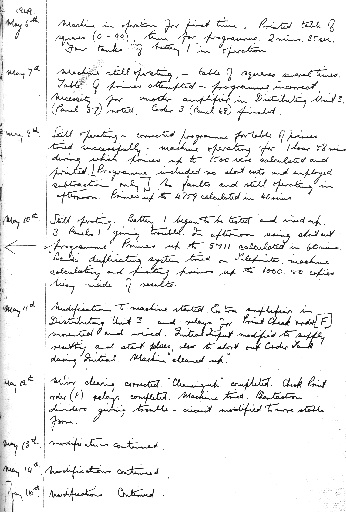 1949
May 6th Machine in operation for first time. Printed table of
squares (0-99), time for programme 2 mins. 35 sec.
Four tanks of battery 1 in operation
May 7th Machine still operating, - table of squares several times.
Table of primes attempted - programme incorrect.
Necessity for another amplifier in Distributing Unit 3.
(Panel 3.7) noted. Coder 3 (Panel 48) finished.
May 9th Still operating - corrected programme for table of primes
tried successfully - machine operating for 1 hour
during which primes up to 1500 were calculated and
printed [Programme included no short cuts and employed
subtraction only]. No faults and still operating in
afternoon. Primes up to 4759 calculated in
May 10th Still operating. Battery 1 began to be tested and wired up.
giving trouble. In afternoon using short cut
programme Primes up to 5711 calculated in
duplicating system tried on Teleprinter, machine
calculating and printing primes up to 1000. 40 copies
being made of results.
May 11th Modification to machine started. Extra amplifier in
Distributing Unit 3 and relays for Point Check order [F]
mounted and wired. Initial Input modified to supply
resetting and start pulse, also to short out Coder Tank
during Initial. Machine "cleaned up".
May 12th Minor clearing corrected. "Cleaning up" completed. Check Point
order (F) relays completed. Machine tried.
dividers giving trouble - circuit modified to more stable
form.
May 13th. modifications continued.
May 14th modifications continued.
May 16th modifications continued.